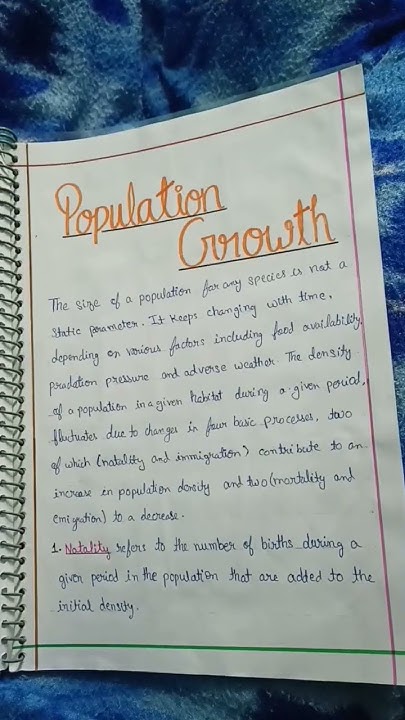 Population
Growth
The size of a population for any species is not a
static parameter. It keeps changing with time,
depending on various factors including food availability,
predation pressure and adverse weather. The density
of a population in a given habitat during a given period,
fluctuates due to changes in four basic processes, two
of which (natality and immigration) contribute to an
increase in population density and two (mortality and
emigration) to a decrease.
1. Natality refers to the number of births during a
given period in the population that are added to the
initial density.